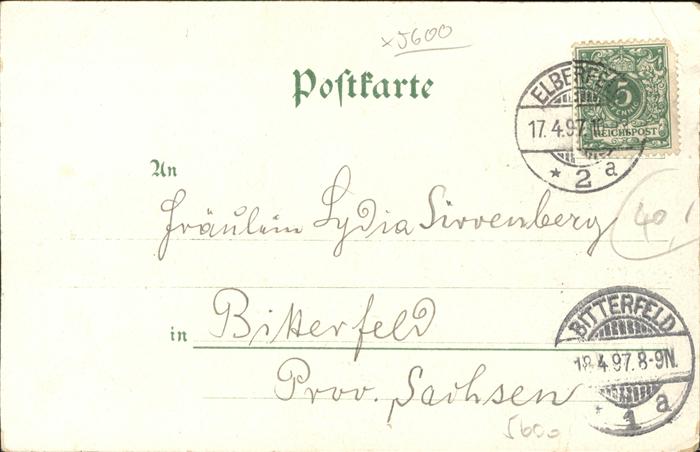 x5600
Postkarte
ELBERFELD
17.4.97.
* 2 a
5
REICHSPOST
An
Fräulein Lydia
40,
in Bitterfeld
Prov. Sachsen
BITTERFELD
18.4.97.8-9N.
* 1 a
5600